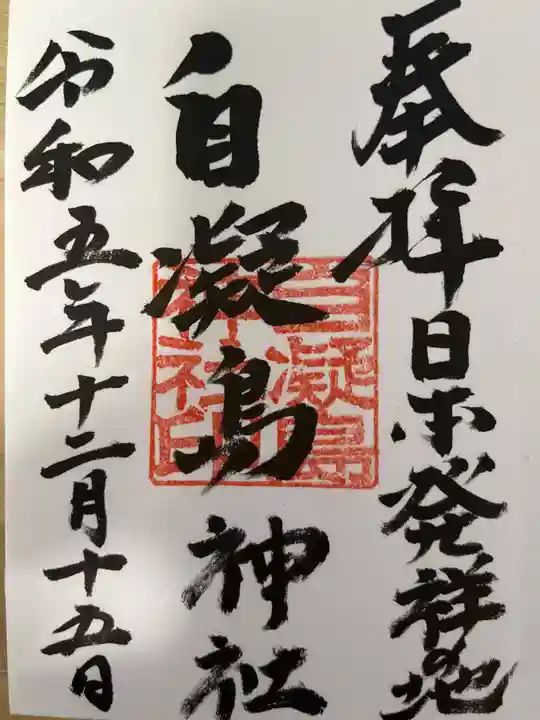 奉拝日本発祥の地
自凝島神社
自凝島神社印
令和五年十二月十五日